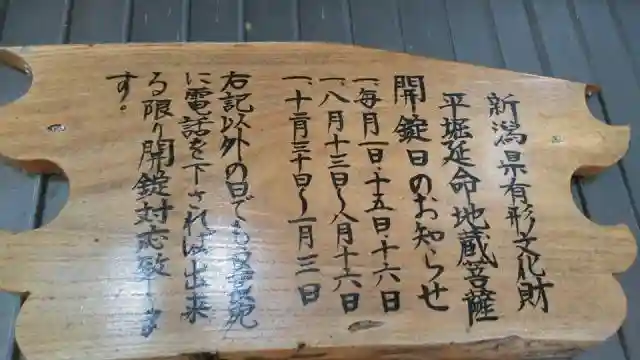 新潟県有形文化財
平堀延命地蔵菩薩
開錠日のお知らせ
一、毎月一日・十五日・十六日
一、八月十三日〜八月十六日
一、十二月三十日〜一月三日
右記以外の日でも宛
に電話を下されば出来
る限り開錠対応致しま
す。